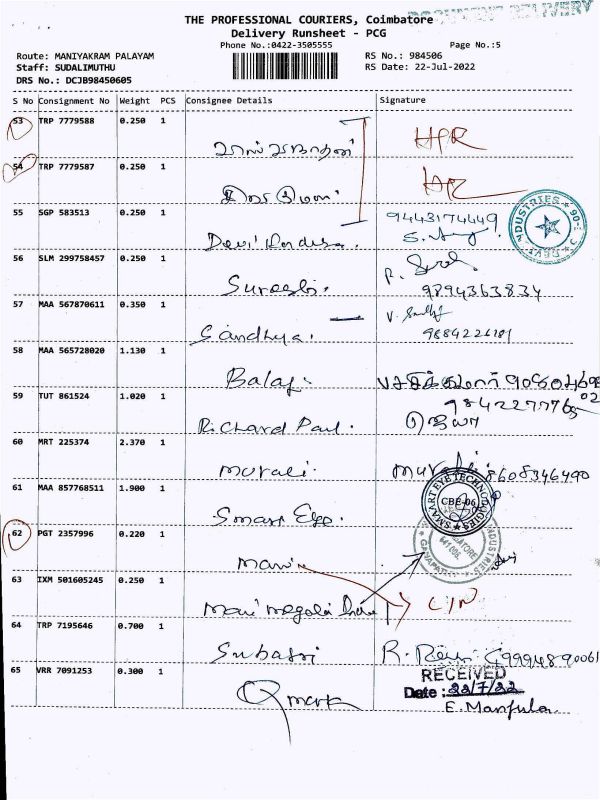 DOCUMENT DELIVERY
THE PROFESSIONAL COURIERS, Coimbatore
Delivery Runsheet - PCG
Phone No.:0422-3505555
Page No.:5
Route: MANIYAKRAM PALAYAM
RS No.: 984506
Staff: SUDALIMUTHU
RS Date: 22-Jul-2022
DRS No.: DCJB98450605
S No Consignment No Weight PCS Consignee Details Signature
53 TRP 7779588 0.250 1
54 TRP 7779587 0.250 1
55 SGP 583513 0.250 1
9443174449
Devi
56 SLM 299758457 0.250 1
Suresh.
9894363834
57 MAA 567870611 0.350 1
Sandhya.
58 MAA 565728020 1.130 1
Balaji
59 TUT 861524 1.020 1
Richard Paul.
ஜெயா
60 MRT 225374 2.370 1
murali.
murali 8608346490
61 MAA 857768511 1.900 1
SMAART EYE TECHNOLOGIES
CBE-06
Smart Eye.
62 PGT 2357996 0.220 1
63 IXM 501605245 0.250 1
64 TRP 7195646 0.700 1
Subasri
65 VRR 7091253 0.300 1
RECEIVED
Date : 22/7/22
Qmark
E. Manjula